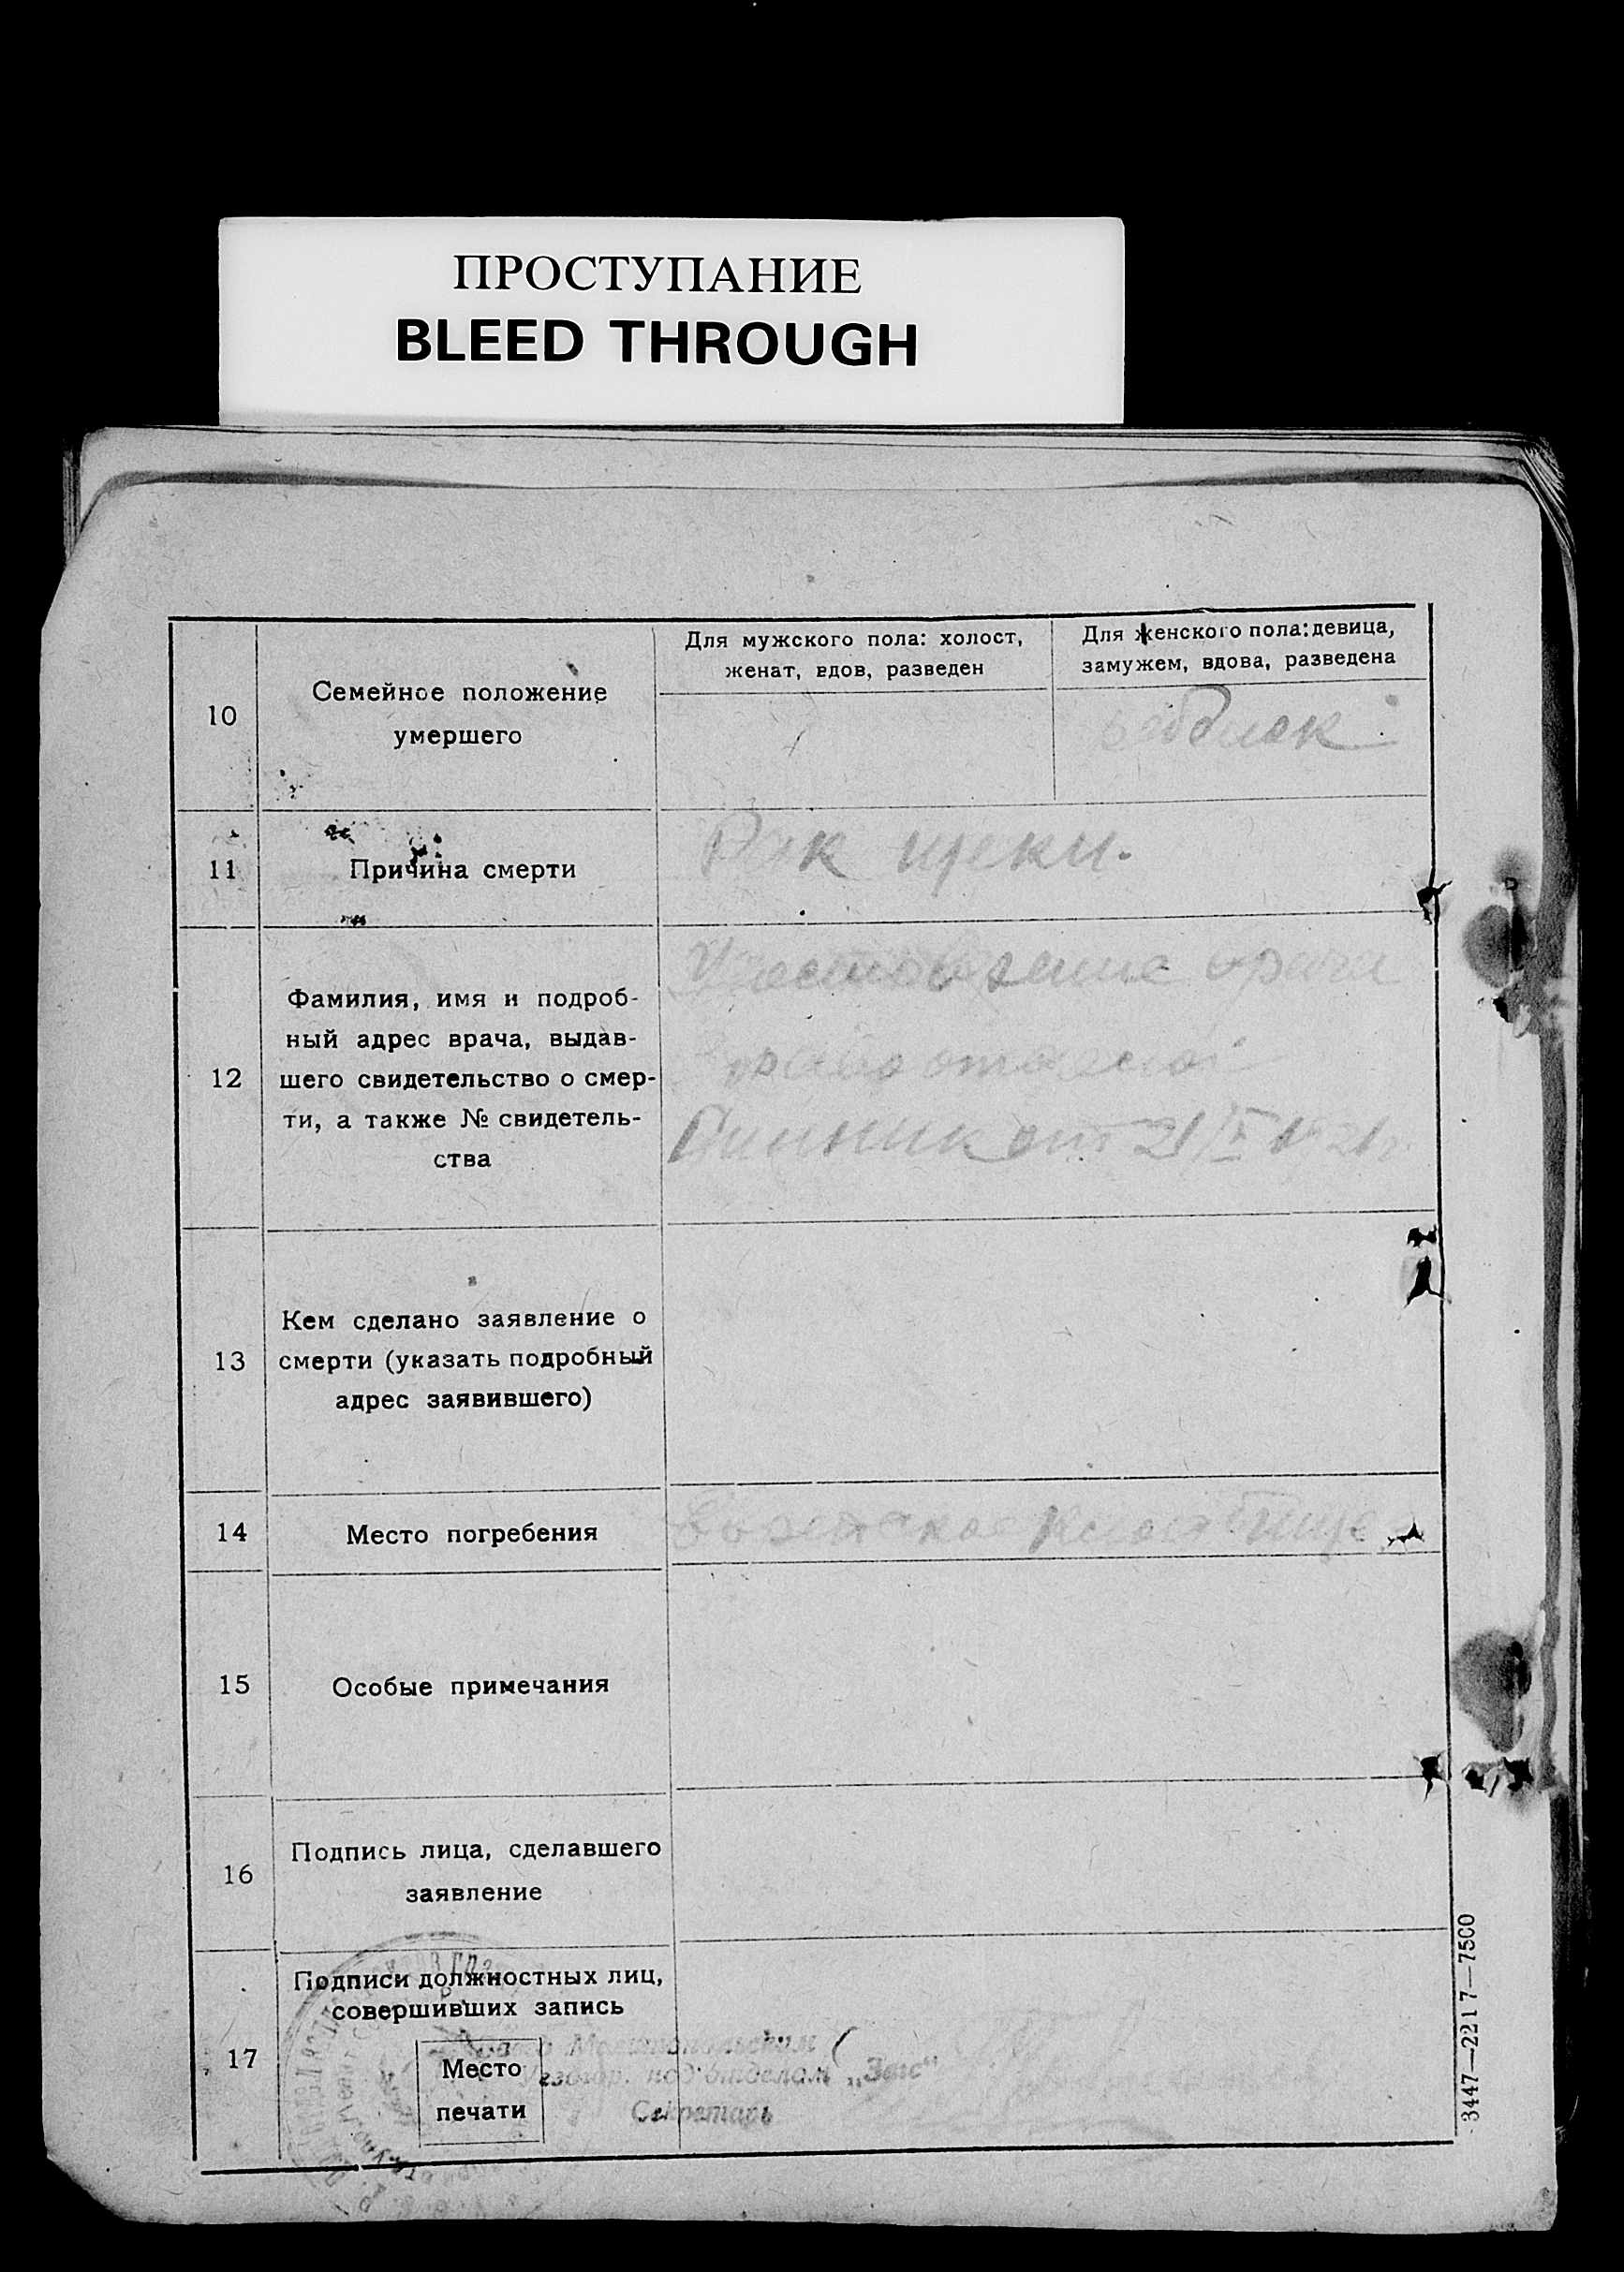 ПРОСТУПАНИЕ
BLEED THROUGH
10
Семейное положение
умершего
Для мужского пола: холост,
женат, вдов, разведен
Для женского пола: девица,
замужем, вдова, разведена
11
Причина смерти
Рак щеки.
12
Фамилия, имя и подроб-
ный адрес врача, выдав-
шего свидетельство о смер-
ти, а также № свидетель-
ства
врача
от 21/
13
Кем сделано заявление о
смерти (указать подробный
адрес заявившего)
14
Место погребения
15
Особые примечания
16
Подпись лица, сделавшего
заявление
17
Подписи должностных лиц,
совершивших запись
Место
печати
под'отделом „Загс"
Секретарь
3447—2217—7500